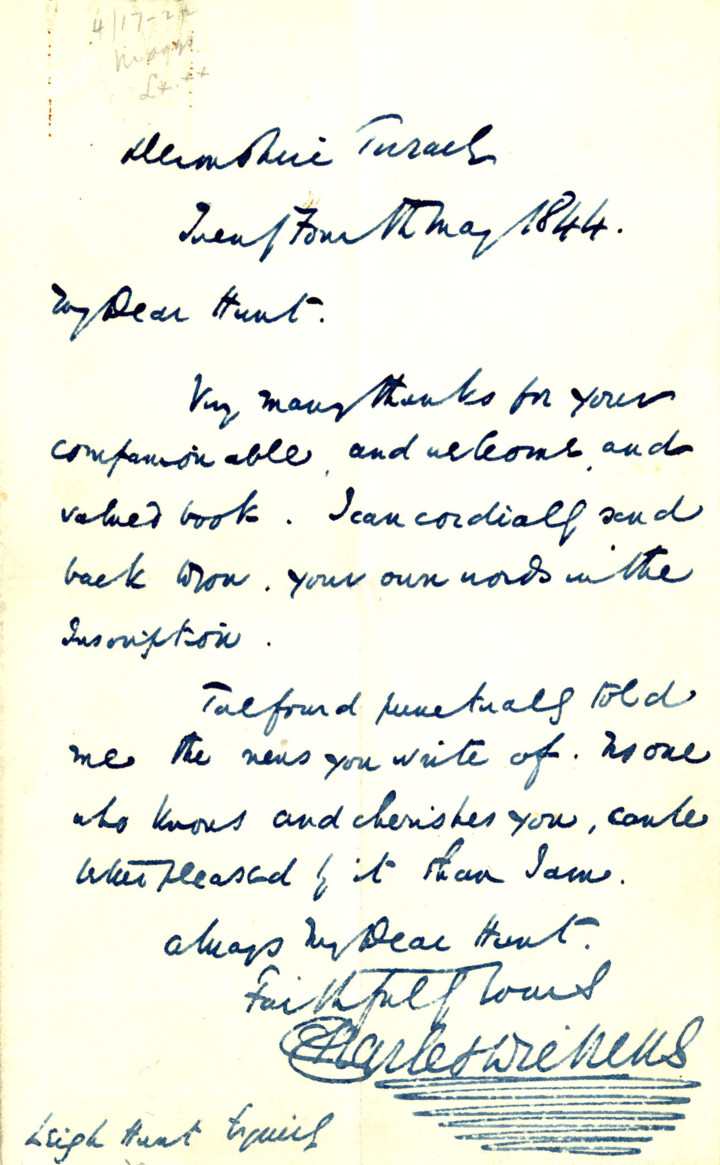 4/17-22
Maggs
£4.××
Devonshire Terrace
Twenty Fourth May 1844.
My Dear Hunt.
Very many thanks for your
companionable, and welcome, and
valued book. I can cordially send
back upon, your own words in the
Inscription.
Talfourd punctually told
me the news you write of. No one
who knows and cherishes you, can be
better pleased by it than I am.
always My Dear Hunt.
Faithfully Yours
Charles Dickens
Leigh Hunt Esquire